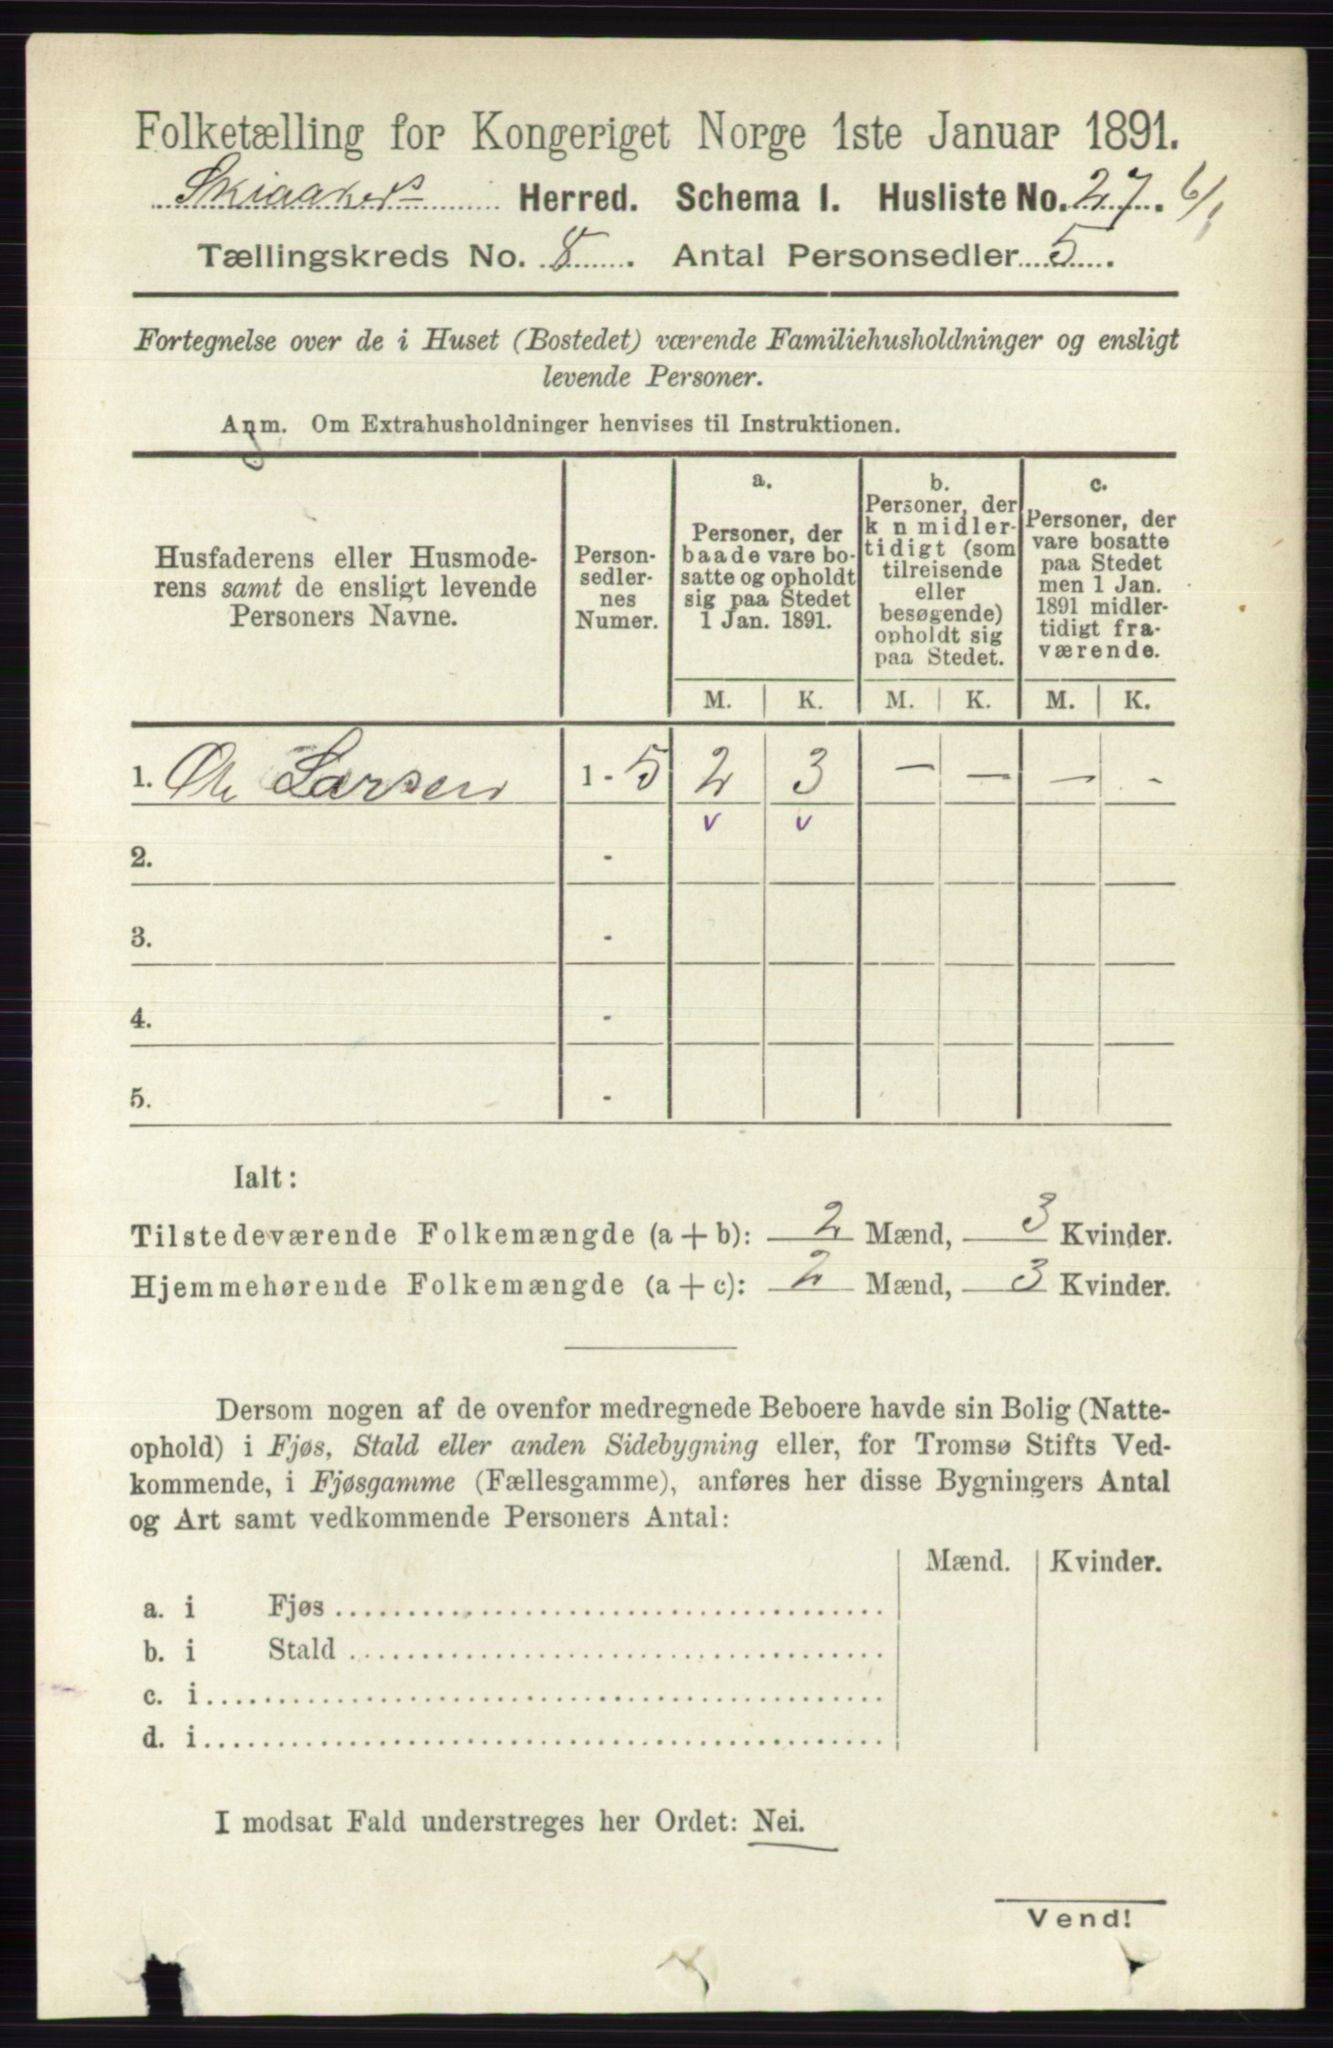 Folketælling for Kongeriget Norge 1ste Januar 1891.
Skiaakers Herred. Schema I. Husliste No. 27. 6/1
Tællingskreds No. 8. Antal Personsedler 5.
Fortegnelse over de i Huset (Bostedet) værende Familiehusholdninger og ensligt
levende Personer.
Anm. Om Extrahusholdninger henvises til Instruktionen.
Husfaderens eller Husmode-
rens samt de ensligt levende
Personers Navne.
Person-
sedler-
nes
Numer.
a.
Personer, der
baade vare bo-
satte og opholdt
sig paa Stedet
1 Jan. 1891.
b.
Personer, der
k n midler-
tidigt (som
tilreisende
eller
besøgende)
opholdt sig
paa Stedet.
c.
Personer, der
vare bosatte
paa Stedet
men 1 Jan.
1891 midler-
tidigt fra-
værende.
M. K. M. K. M. K.
1. Ole Larsen 1 - 5 2 3 - - - -
v v
2. -
3. -
4. -
5. -
Ialt:
Tilstedeværende Folkemængde (a + b): 2 Mænd, 3 Kvinder.
Hjemmehørende Folkemængde (a + c): 2 Mænd, 3 Kvinder.
Dersom nogen af de ovenfor medregnede Beboere havde sin Bolig (Natte-
ophold) i Fjøs, Stald eller anden Sidebygning eller, for Tromsø Stifts Ved-
kommende, i Fjøsgamme (Fællesgamme), anføres her disse Bygningers Antal
og Art samt vedkommende Personers Antal:
Mænd. Kvinder.
a. i Fjøs
b. i Stald
c. i
d. i
I modsat Fald understreges her Ordet: Nei.
Vend!